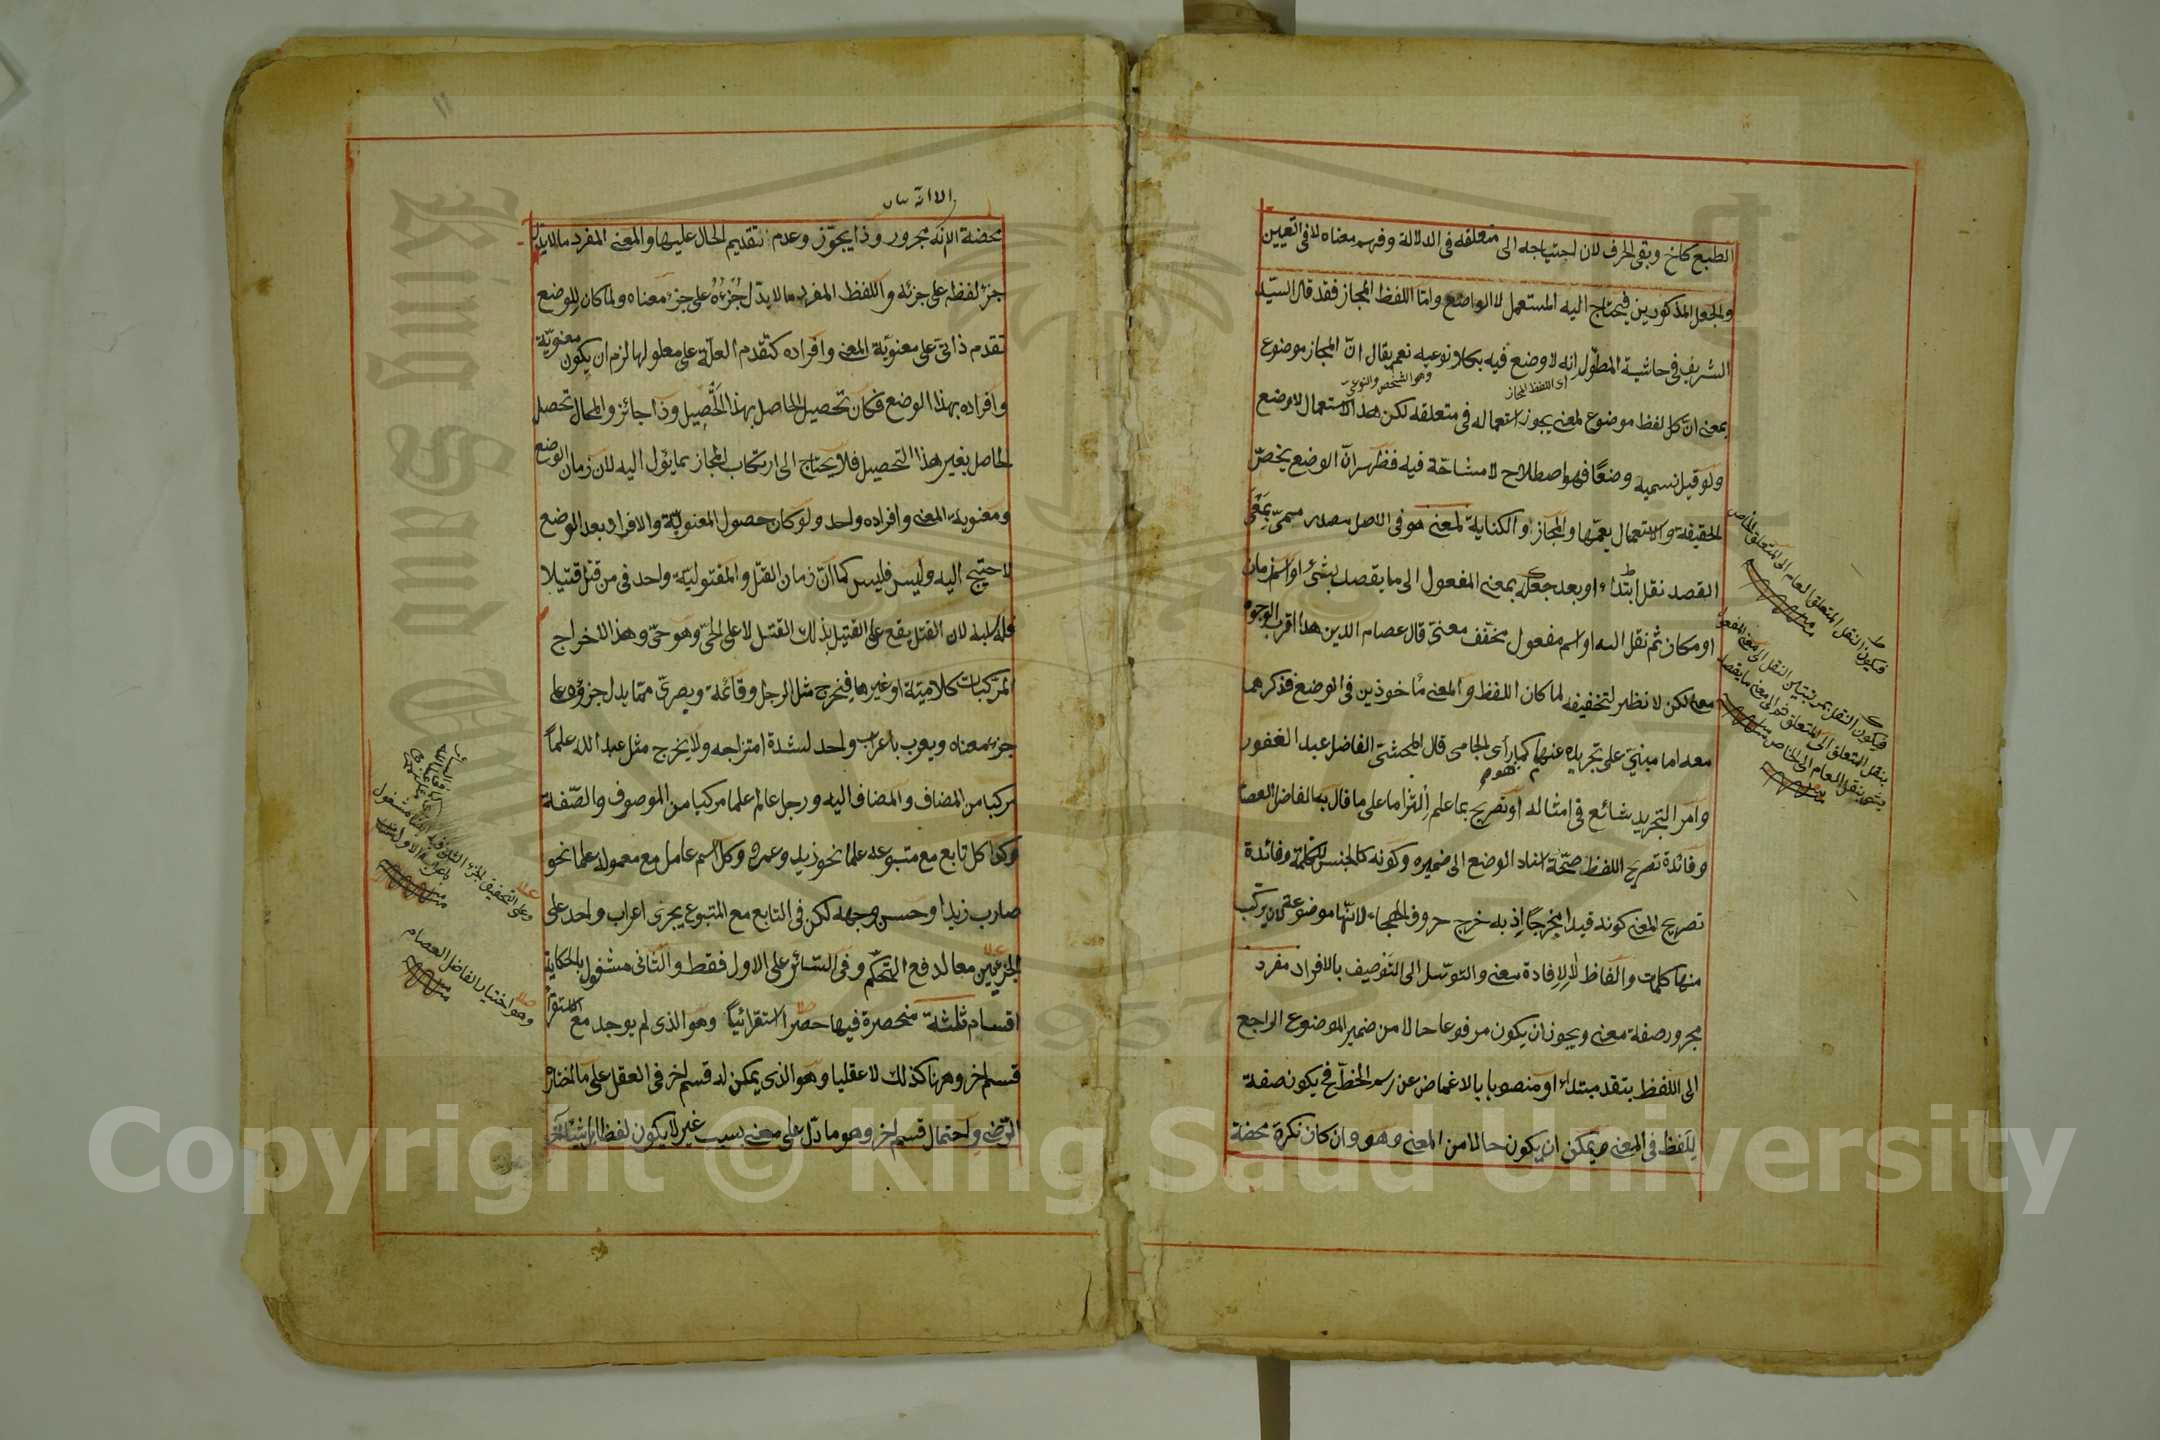 الطبع كاخ وبقى الحرف لان احتياجه الى متعلقه فى الدلالة وفهم معناه لا فى التعيين
والجعل المذكورين فيحتاج اليه المستعمل لا الواضع واما اللفظ المجاز فقد قال السيّد
الشريف فى حاشية المطول انه لا وضع فيه بكلا نوعيه نعم يقال انّ المجاز موضوع
اى اللفظ المجاز
وهو الشخصى والنوعى
بمعنى انّ كل لفظ موضوع لمعنى يجوز استعماله فى متعلقه لكن هذا الاستعمال لا وضع
ولو قيل نسميه وضعًا فهو اصطلاح لا مشاحّة فيه فظهر انّ الوضع يخصّ
الحقيقة والاستعمال يعمّها والمجاز والكناية لمعنى هو فى الاصل مصدر ميمىّ بمعْنَى
القصد نقل ابتداء او بعد جعله بمعنى المفعول الى ما يقصد بشئ او اسم زمان
او مكان ثم نقل اليه او اسم مفعول مخفّف معنىّ قال عصام الدين هذا اقرب الوجوه
معنى لكن لا نظير لتخفيفه لما كان اللفظ والمعنى مأخوذين فى الوضع فذكرهما
معه اما مبنىّ على تجريده عنهما كما رأى الجامى قال المحشّى الفاضل عبد الغفور
وامر التجريد شائع فى امثاله او تصريح بما علم التزاما على ما قال به الفاضل العصام
وفائدة تصريح اللفظ صحّة اسناد الوضع الى ضميره وكونه كالجنس للكلمة وفائدة
تصريح المعنى كونه قيدا مخرجًا اذ به خرج حروف الهجاء لانّها موضوعة لان يركّب
منها كلمات والفاظ لا لإفادة معنى والتوسّل الى التوصيف بالافراد مفرد
مجرور صفة معنى ويجوز ان يكون مرفوعا حالا من ضمير الموضوع الراجع
الى اللفظ بتقد مبتداء او منصوبا بالاغماض عن رسم الخطّ فح يكون صفة
للفظ فى المعنى ويمكن ان يكون حالا من المعنى وهو وان كان نكرة محضة
فيكون النقل المتعلق العام الى المتعلق الخاص
فيكون النقل بمرتبتين النقل الى معنى المفعول
بنقل المتعلق الى المتعلق ثم الى معنى ما يقصد
بشئ بنقل العام الى الخاص
١١
الا انه
محضة الا انه مجرور وذا يجوّز وعدم تقديم الحال عليها والمعنى المفرد ما لا يدل
جزء لفظه على جزئه واللفظ المفرد ما لا يدل جُزءُهُ على جزء معناه ولما كان للوضع
تقدم ذاتىّ على معنويّة المعنى وافراده كتقدم العلّة على معلولها لزم ان يكون معنويّة
وافراده بهذا الوضع فكان تحصيل الحاصل بهذا التحصيل وذا جائز والمحال تحصل
الحاصل بغير هذا التحصيل فلا يحتاج الى ارتكاب المجاز بما يئول اليه لان زمان الوضع
ومعنوية المعنى وافراده واحد ولو كان حصول المعنويّة والافراد بعد الوضع
لاحتيج اليه وليس فليس كما انّ زمان القتل والمقتوليّة واحد فى من قتل قتيلا
فله سلبه لان القتل يقع على القتيل بذلك القتل لا على الحىّ وهو حىّ وهذا لاخراج
المركبات كلاميّة او غيرها فيخرج مثل الرجل وقائمة وبصرىّ ممّا يدل جزؤه على
جزء معناه ويعرب باعراب واحد لشدة امتزاجه ولا يخرج مثل عبد الله علماً
مركبا من المضاف والمضاف اليه ورجل عالم علما مركبا من الموصوف والصّفة
وكذا كل تابع مع متبوعه علما نحو زيد وعمرو وكل اسم عامل مع معموله علما نحو
ضارب زيدا وحسن وجهه لكن فى التابع مع المتبوع يجرى اعراب واحد على
الجزئين معا لدفع التحكّم وفى السّائر على الاول فقط والثّانى مشغول بالحكاية
اقسام ثلثة منحصرة فيها حصرا استقرائيّاً وهو الذى لم يوجد مع الاستقراء
قسم اخر وهو هنا كذلك لا عقليا وهو الذى يمكن له قسم اخر فى العقل على ما اختاره
الرضى واحتمال قسم اخر وهو ما دلّ على معنى بسبب غير لا يكون لفظا
وعلى التحقيق الجزء الثانى فيه ايضا مشغول
وهو اختيار الفاضل العصام
Copyright © King Saud University
King Saud University
1957